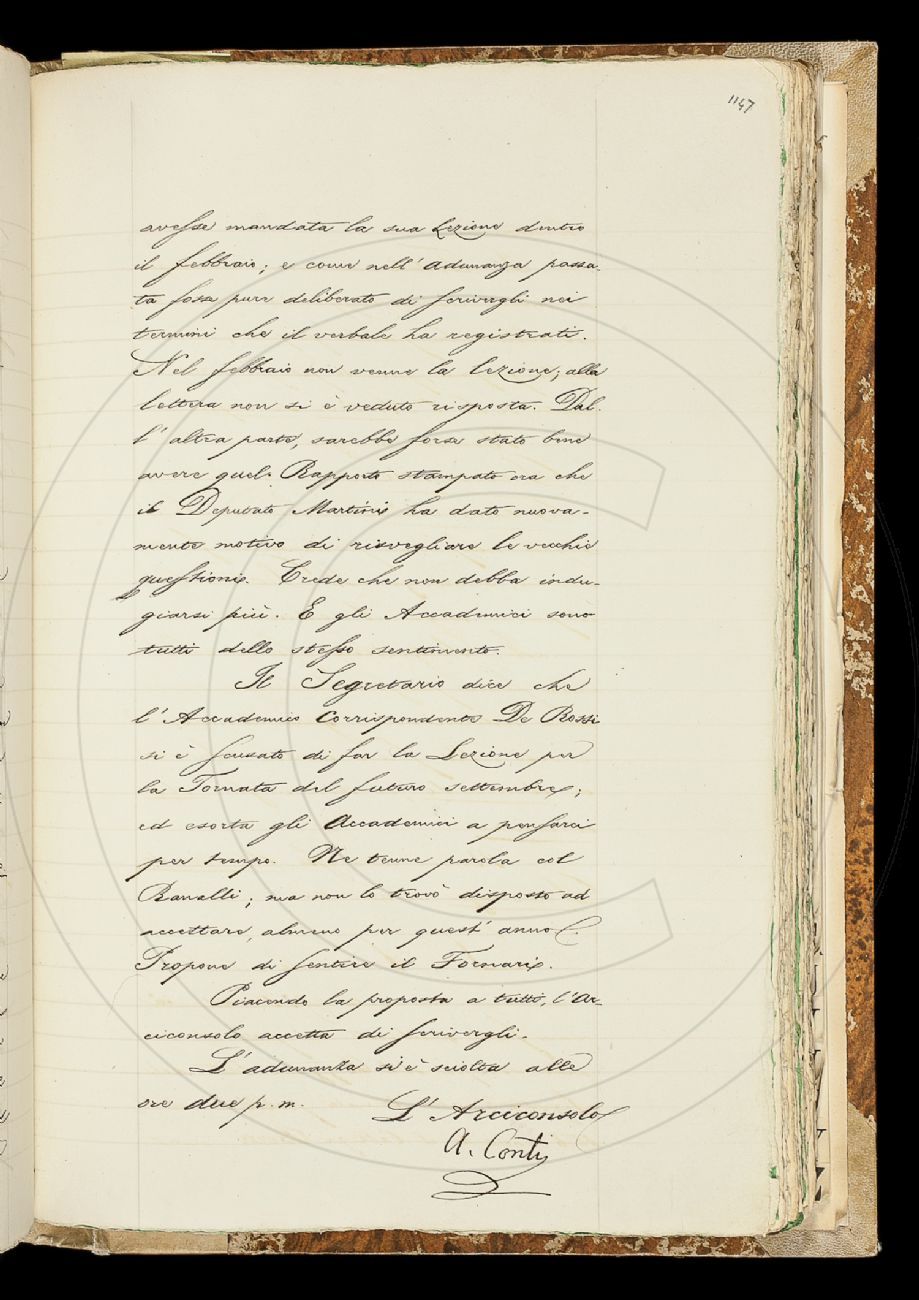 1147
avesse mandata la sua Lezione dentro
il febbraio; e come nell'adunanza passa-
ta fosse pure deliberato di scrivergli nei
termini che il verbale ha registrati.
Nel febbraio non venne la lezione; alla
lettera non si è veduto risposta. Dal-
l'altra parte, sarebbe forse stato bene
avere quel Rapporto stampato ora che
il Deputato Martini ha dato nuova-
mente motivo di risvegliare le vecchie
questioni. Crede che non debba indu-
giarsi più. E gli Accademici sono
tutti dello stesso sentimento.
Il Segretario dice che
l'Accademico Corrispondente De Rossi
si è scusato di far la Lezione per
la Tornata del futuro settembre;
ed esorta gli Accademici a pensarci
per tempo. Ne tenne parola col
Ranalli; ma non lo trovò disposto ad
accettare, almeno per quest'anno.
Propone di sentire il Fornari.
Piacendo la proposta a tutti, l'Ar-
ciconsolo accetta di scrivergli.
L'adunanza si è sciolta alle
ore due p.m.
L'Arciconsolo
A. Conti